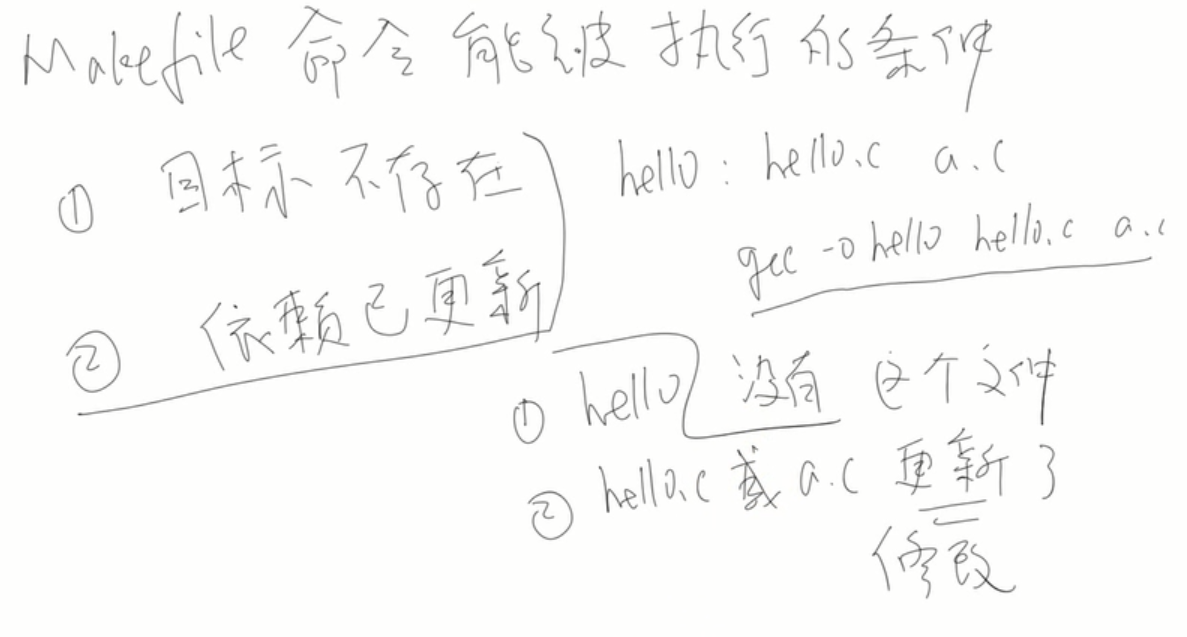 Makefile 命令 能被 执行 的条件
① 目标 不存在
② 依赖已更新
hello : hello.c a.c
gcc -o hello hello.c a.c
① hello 没有 这个文件
② hello.c 或 a.c 更新了
修改